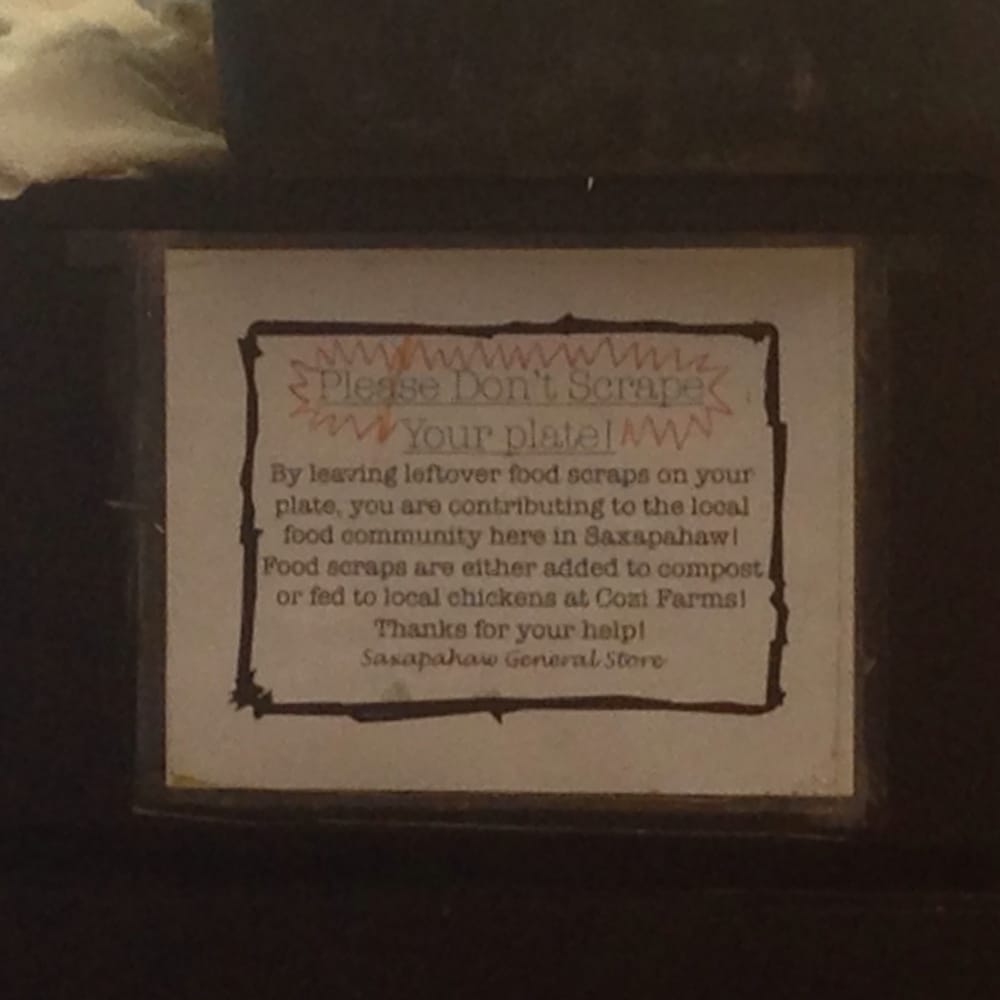 Please Don't Scrape
Your plate!
By leaving leftover food scraps on your
plate, you are contributing to the local
food community here in Saxapahaw!
Food scraps are either added to compost
or fed to local chickens at Cozi Farms!
Thanks for your help!
Saxapahaw General Store